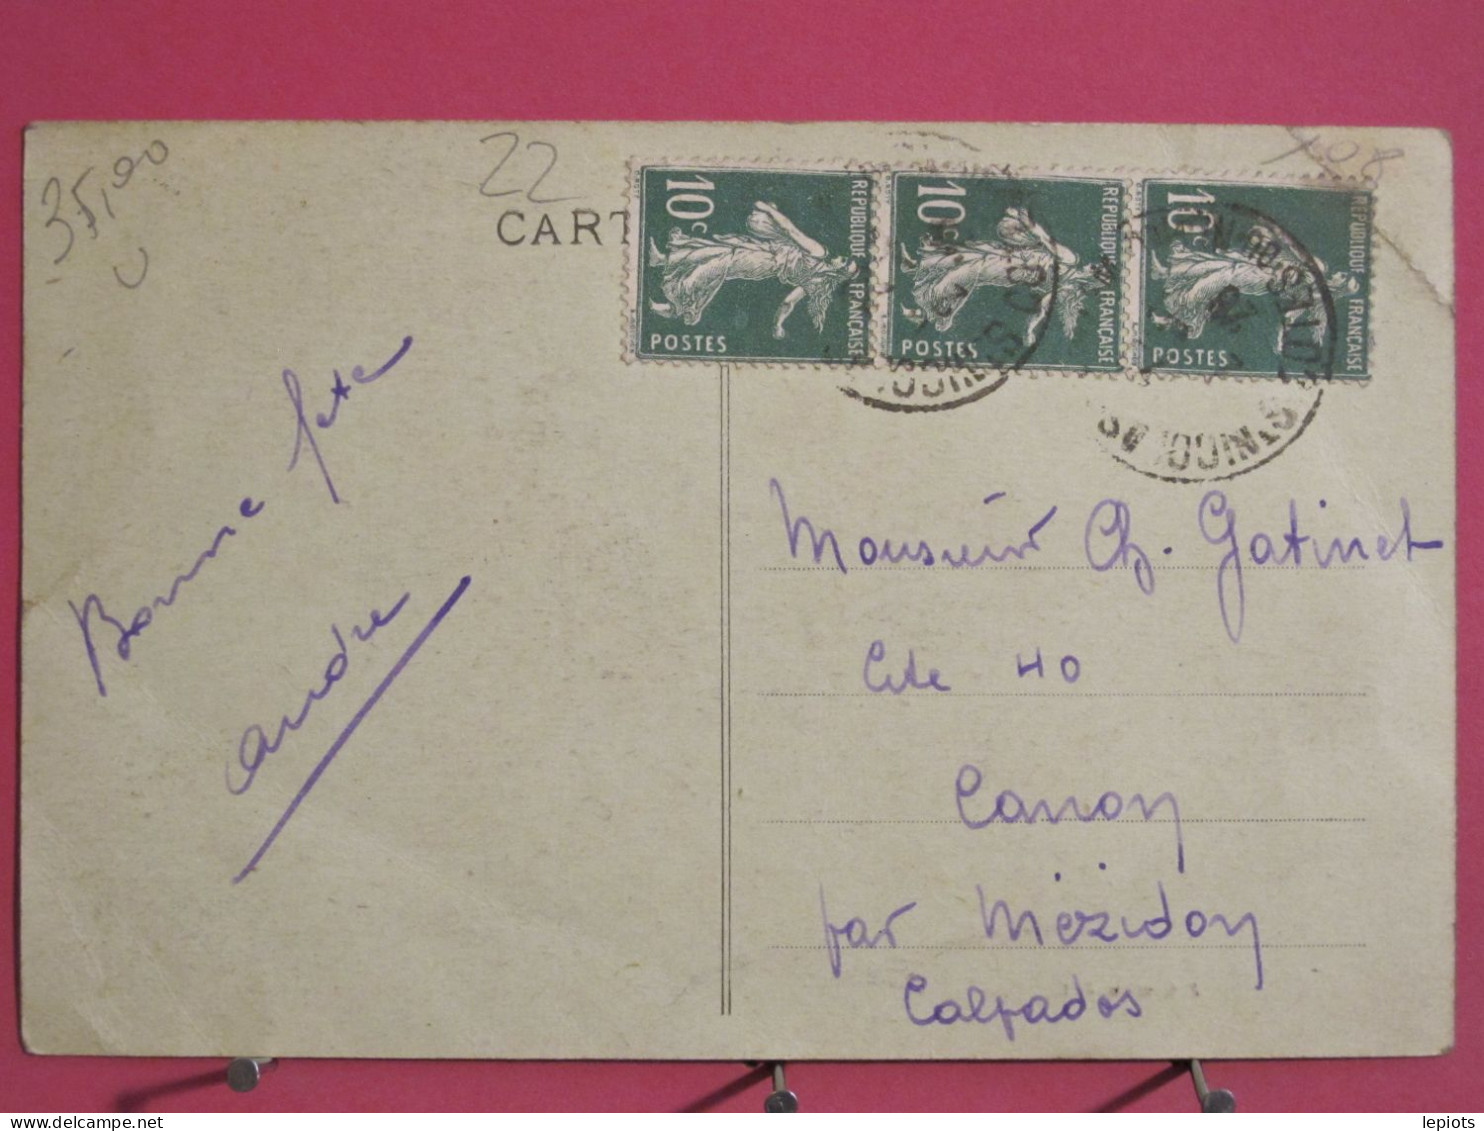 35,00
22
108
CART
10c
REPUBLIQUE FRANÇAISE
POSTES
10c
REPUBLIQUE FRANÇAISE
POSTES
10c
REPUBLIQUE FRANÇAISE
POSTES
ST NICOLAS
Bonne fete
andre
Monsieur Ch. Gatinet
Cite 40
Canon
par Mézidon
Calvados
lepiots